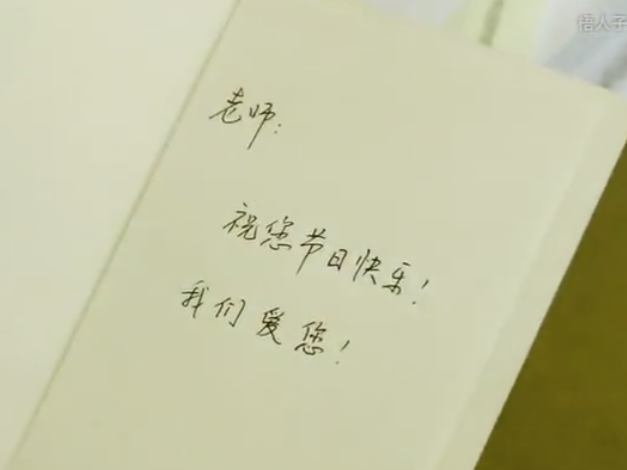 悟人子
老师:
祝您节日快乐!
我们爱您!